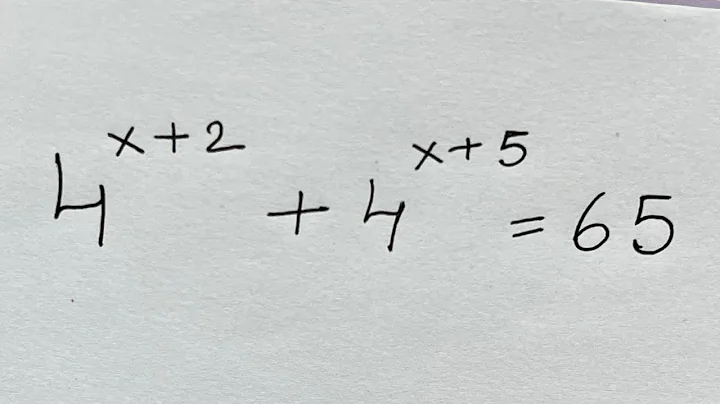 4^{x+2} + 4^{x+5} = 65